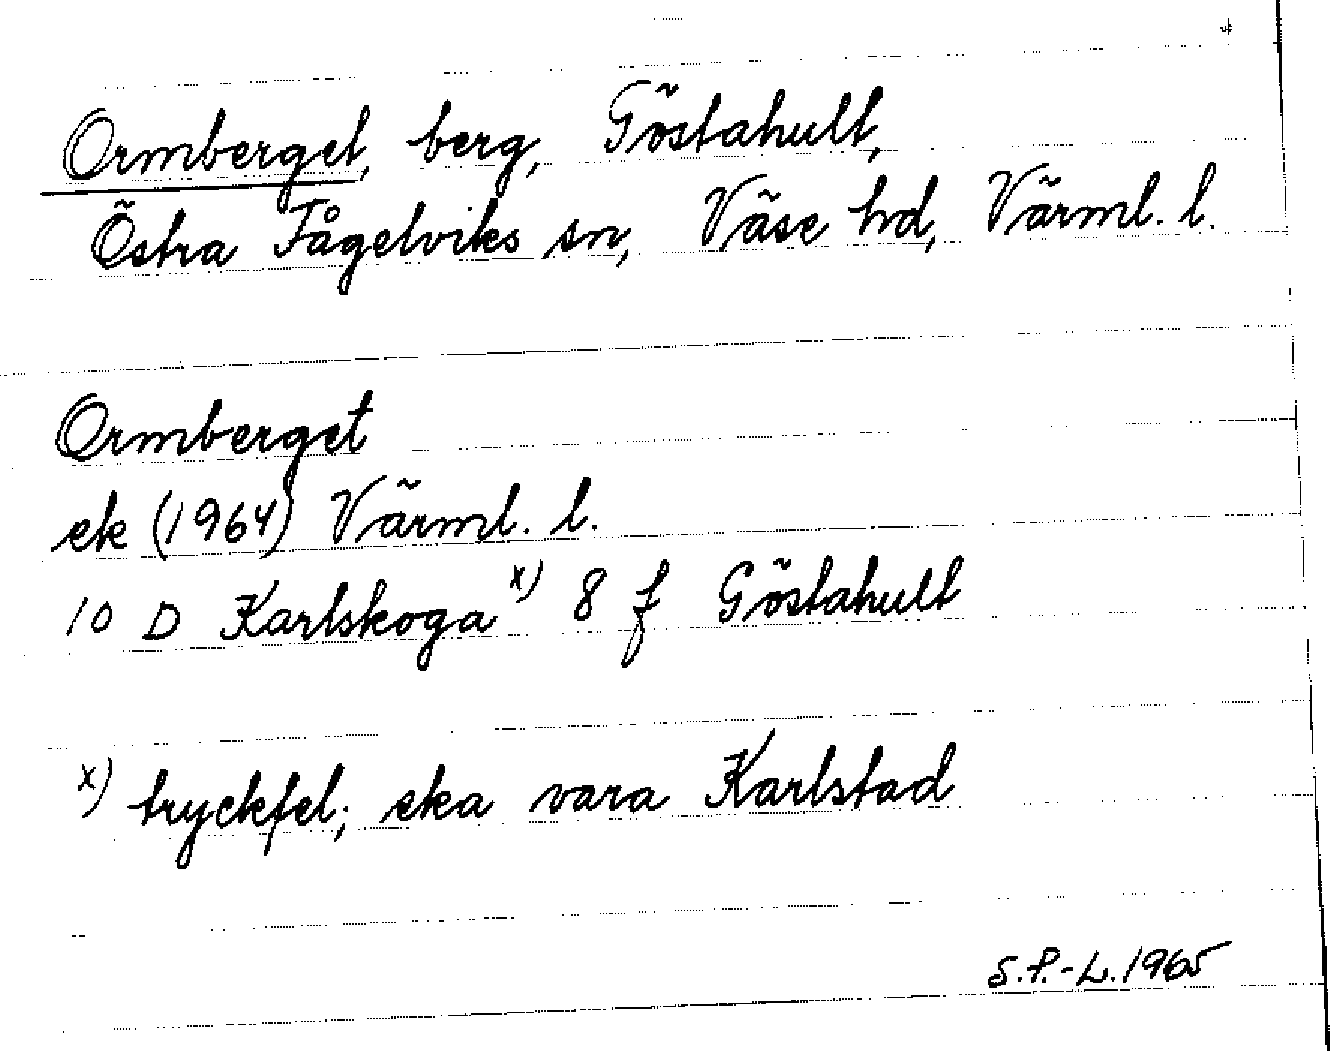 Ormberget, berg, Göstahult,
Östra Fågelviks sn, Väse hd, Värml. l.
Ormberget
ek (1964) Värml. l.
10 D Karlskoga x) 8 f Göstahult
x) tryckfel; ska vara Karlstad
S.P.-L. 1965